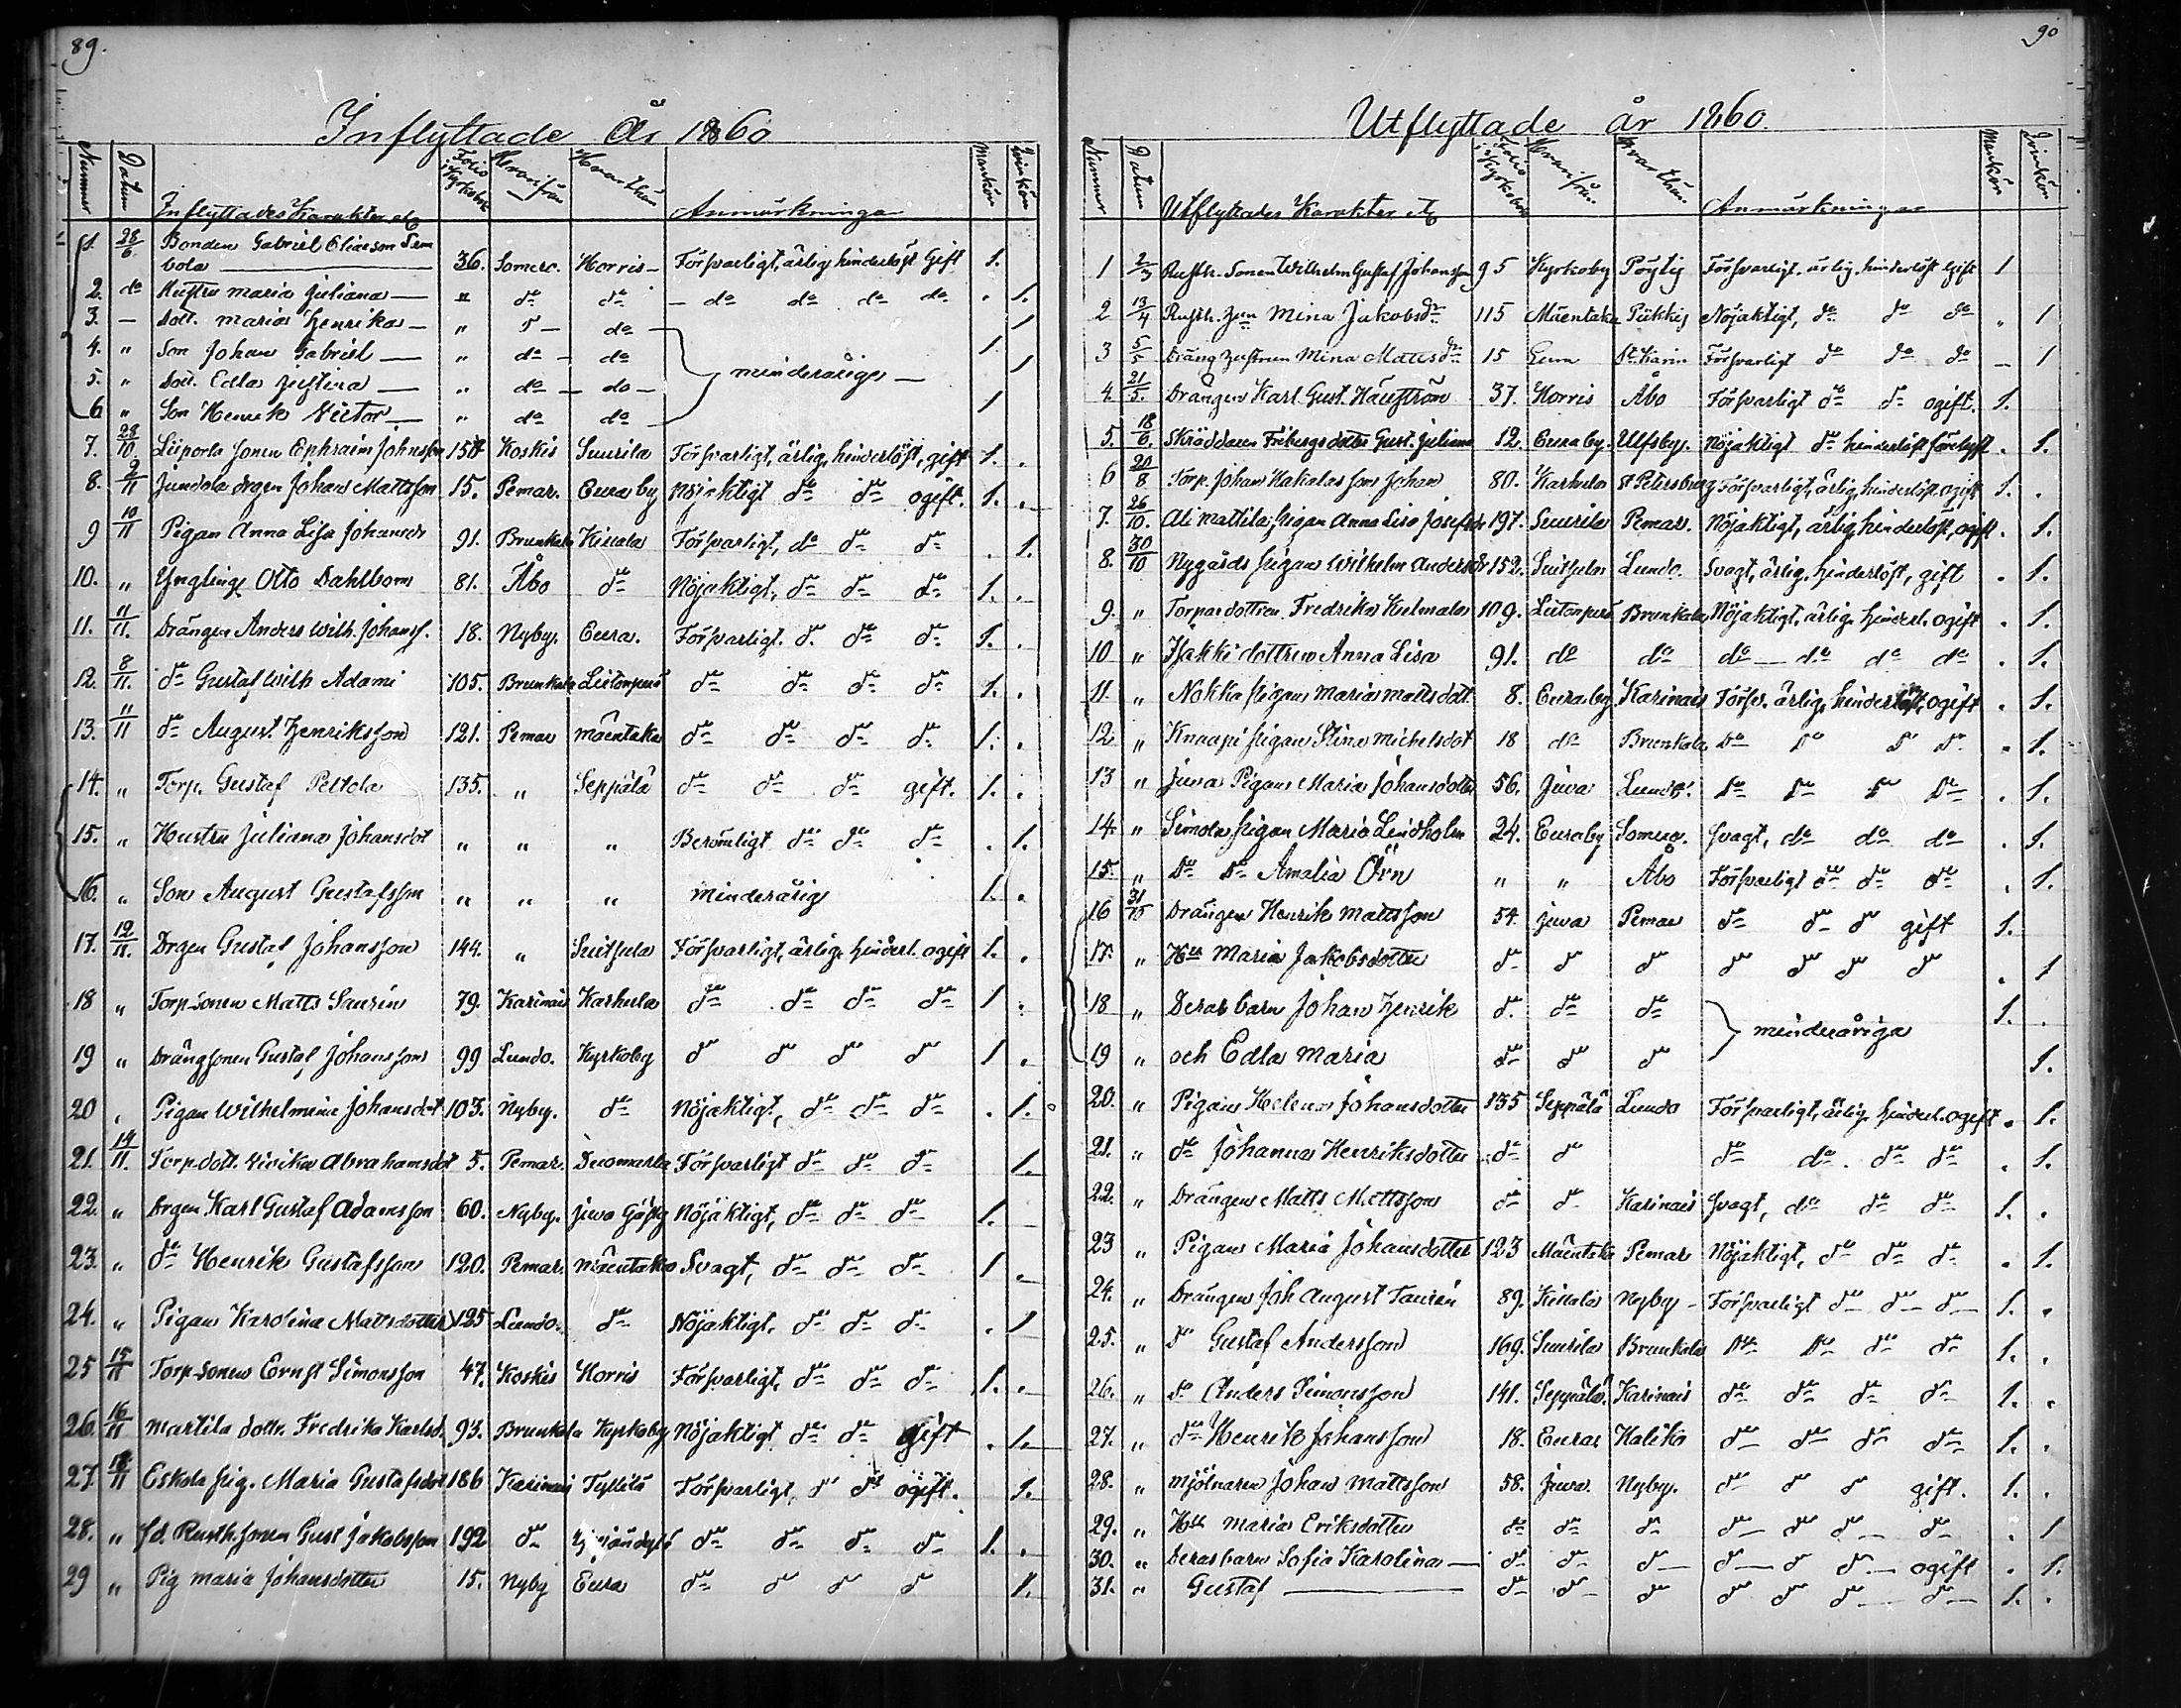 89.
Inflyttade År 1860
Nummer Datum Inflyttades Karakter etc Folio i Kyrkobok Hvarifrån Hvarthän Anmärkningar Mankön Qvinkön
1. 28/6 Bonden Gabriel Eliasson Sim
bola 36. Somero. Horris Försvarligt, ärlig hinderlöst Gift 1.
2. do Hustru Maria Juliana — " do do — do do do do . 1.
3. — dott. Maria Henrika — " do — do 1
4. " Son Johan Gabriel — " do — do 1
5. " dott. Edla Justina — " do — do — minderåriga — 1
6 " Son Henrik Victor — " do do 1
7. 28/10 Liiporla sonen Ephraim Johnsson 158 Koskis Suurila Försvarligt, ärlig, hinderlöst, gift 1. .
8. 2/11 Jundola drgen Johan Mattsson 15. Pemar. Eura by Nöjaktigt do do ogift. 1. .
9 10/11 Pigan Anna Lisa Johansdr 91. Brunkala Kiilala Försvarligt, do do do . 1.
10. " Ynglinge Otto Dahlbom 81. Åbo do Nöjaktigt, do do do 1. .
11. 11/11. Drängen Anders Wilh. Johanss. 18. Nyby. Eura. Försvarligt. do do do 1. .
12. 8/11. do Gustaf Wilh Adami 105. Brunkala Liitonperä do do do do 1. .
13. 11/11 do August Henriksson 121. Pemar Mäentaka do do do do 1. .
14. " Torp. Gustaf Peltola 135. " Seppälä do do do gift. 1. .
15. " Hustru Juliana Johansdot " " " Berömligt do do do . 1.
16. " Son August Gustafsson " " " minderårig 1. .
17. 12/11. Drgen Gustaf Johansson 144. " Suitsula Försvarligt, ärlig hinderl. ogift 1. .
18 " Torp-sonen Matts Saurin 79. Karinais Karhula do do do do 1 .
19 " Drängsonen Gustaf Johansson 99 Lundo. Kyrkoby do do do do 1 .
20 " Pigan Wilhelmina Johansdot 103. Nyby. do Nöjaktigt, do do do . 1.
21. 14/11. Torp. dott. Vivika Abrahamsdot 5. Pemar. Duomarla Försvarligt do do do 1.
22. " Drgen Karl Gustaf Adamsson 60. Nyby. Juva Nöjaktigt, do do do 1.
23. " do Henrik Gustafsson 120. Pemar. Mäentaka Svagt, do do do 1 .
24. " Pigan Karolina Mattsdotter 125 Lundo. do Nöjaktigt. do do do . 1
25 15/11 Torp-sonen Ernst Simonsson 47. Koskis Horris Försvarligt. do do do 1. .
26. 16/11 Martila dottr. Fredrika Karlsd. 93. Brunkala Kyrkoby Nöjaktigt do do gift . 1.
27. 18/11 Eskola pig. Maria Gustafsdot 186 Karinais Tyllilä Försvarligt, do do ogift. 1.
28. " fd. Rusth. sonen Gust Jakobsson 192 do do do do do 1. .
29 " Pig Maria Johansdotter 15. Nyby Eura do do do do 1.
90
Utflyttade år 1860.
Nummer Datum Utflyttades Karakter etc Folio i Kyrkobok Hvarifrån Hvarthän Anmärkningar Mankön Qvinkön
1 2/3 Rusth. Sonen Wilhelm Gustaf Johansson 95 Kyrkoby Pöytis Försvarligt. ärlig. hinderlöst Gift 1
2 13/4 Rusth. Mina Jakobsdr 115 Mäentaka Piikkis Nöjaktigt, do do do " 1
3 5/5 Dräng hustrun Mina Mattsdr 15 Eura St. Karin Försvarligt do do do — 1
4. 21/5. Drängen Karl Gust. Häggström 37. Horris Åbo Försvarligt do do ogift. 1.
5. 18/6. Skräddaren Fribergs dotter Gust. Juliana 12. Eura by. Ulfsby. Nöjaktigt do hinderlöst . 1.
6 20/8 Torp. Johan Hakalas son Johan 80. Karhula St Petersburg Försvarligt, ärlig, hinderlöst ogift 1. .
7. 26/10. Ali Mattila pigan Anna Lisa Josefsdr 197. Suurila Pemar. Nöjaktigt, ärlig hinderlöst, ogift . 1.
8. 30/10 Nygårds pigan Wilhelm Andersdr 152. Suitsula Lundo. Svagt, ärlig, hinderlöst, gift . 1.
9. " Torpar dottren Fredrika Kulmala 109. Liitonperä Brunkala Nöjaktigt, ärlig hinderl. ogift . 1.
10 " Isakki dottren Anna Lisa 91. do do do — do do do . 1.
11. " Nokka pigan Maria Mattsdot 8. Euraby Karinais Försv. ärlig, hinderlöst, ogift . 1.
12 " Knaapi pigan Stina Michelsdot 18 do Brunkala do do do do . 1.
13 " Juva Pigan Maria Johansdotter 56. Juva Lundo. do do do do . 1.
14. " Simola pigan Maria Lindholm 24. Euraby Somero. Svagt, do do do . 1.
15. " do do Amalia Örn " " Åbo Försvarligt do do do . 1.
16 31/10 Drängen Henrik Mattsson 54. Juva Pemar do do do gift 1.
17. " Hu Maria Jakobsdotter do do do do do do do . 1
18 " Deras barn Johan Henrik do do do minderåriga 1. .
19 " och Edla Maria do do do 1.
20. " Pigan Helena Johansdotter 135 Seppälä Lundo Försvarligt, ärlig hinderl. ogift . 1.
21. " do Johanna Henriksdotter do do do do do do . 1.
22. " Drängen Matts Mattsson do do Karinais Svagt, do do do 1. .
23 " Pigan Maria Johansdotter 123 Mäentaka Pemar Nöjaktigt, do do do . 1.
24. " Drängen Joh August Taurén 89. Kiilala Nyby — Försvarligt do do do 1. .
25. " do Gustaf Andersson 169. Suurila Brunkala do do do do 1. .
26. " do Anders Simonsson 141. Seppälä. Karinais do do do do 1. .
27. " do Henrik Johansson 18. Eura Haliko do do do do 1. .
28. " Mjölnaren Johan Mattsson 58. Juva. Nyby. do do do gift. 1. .
29. " Hu Maria Eriksdotter do do do do do do do . 1
30. " Deras barn Sofia Karolina — do do do do do do ogift . 1.
31. " Gustaf — do do do do do do do 1. .